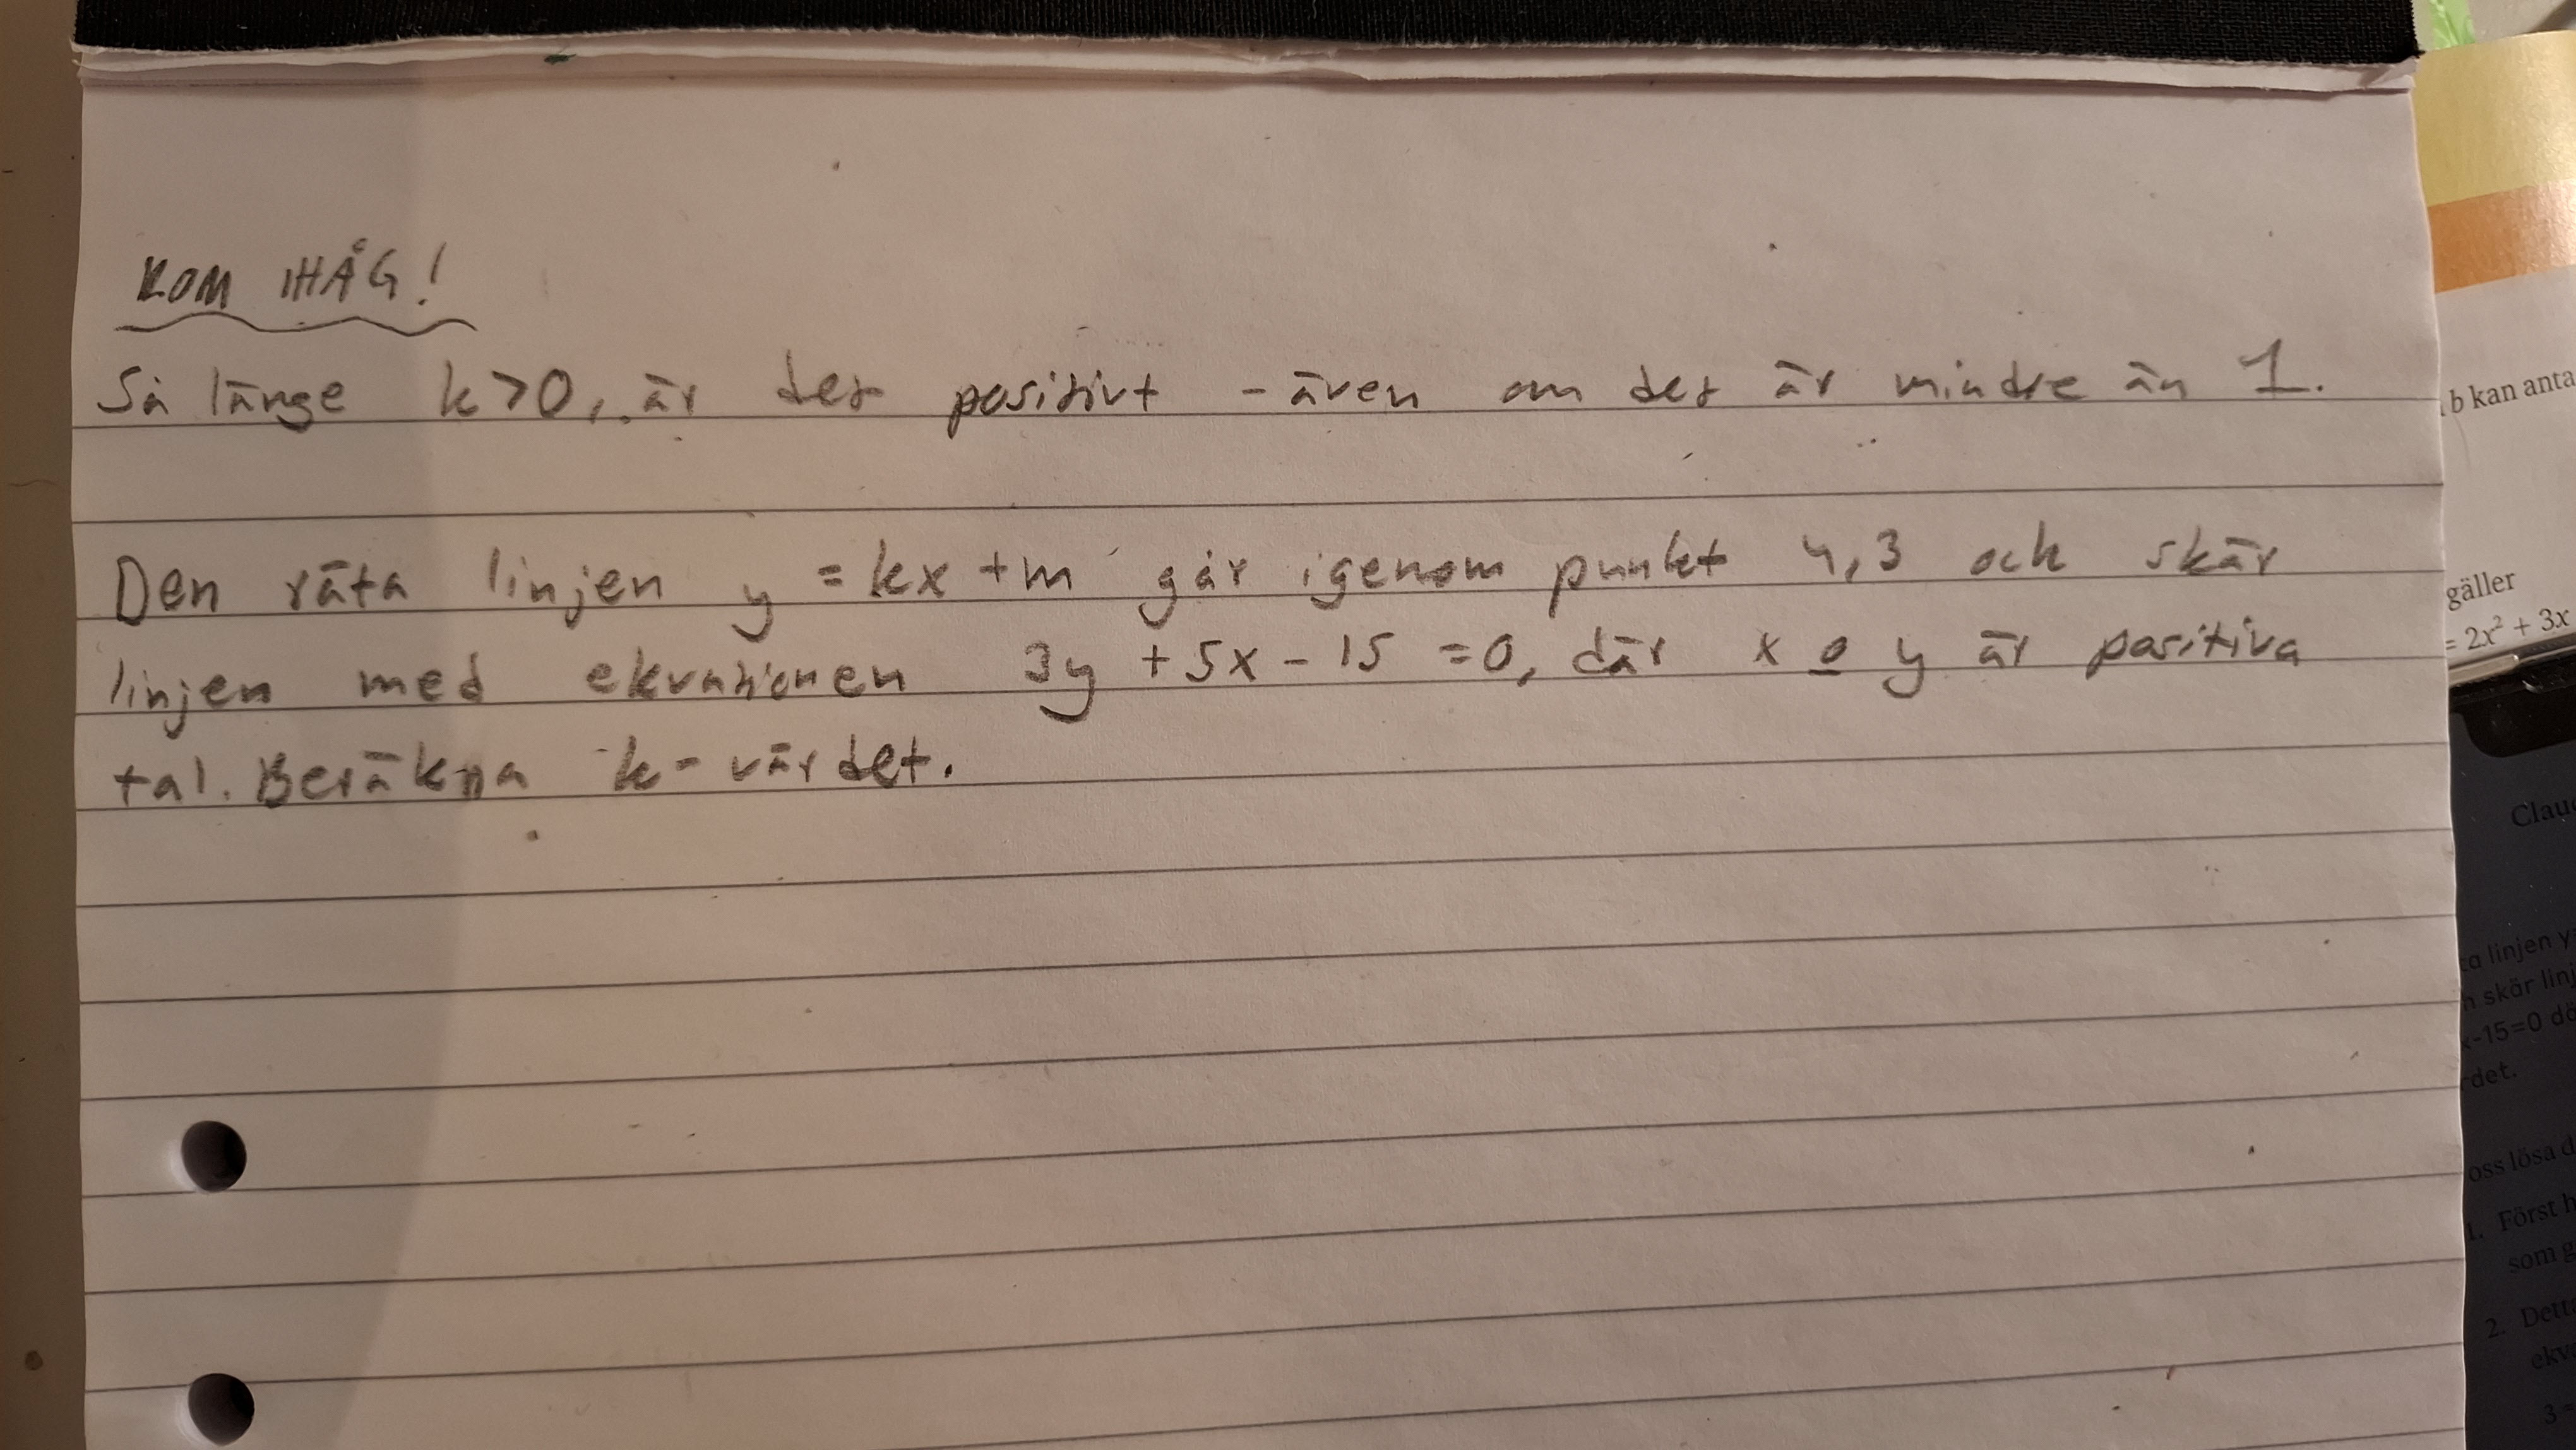 KOM IHÅG!
Så länge k>0, är det positivt - även om det är mindre än 1.
Den räta linjen y = kx + m går igenom punkt 4,3 och skär
linjen med ekvationen 3y + 5x - 15 = 0, där x o y är positiva
tal. Beräkna k-värdet.
b kan anta
gäller
= 2x² + 3x
Clau
ta linjen y
skär linj
x-15=0 dä
rdet.
oss lösa d
1. Först h
som g
2. Detta
ekv
3 =